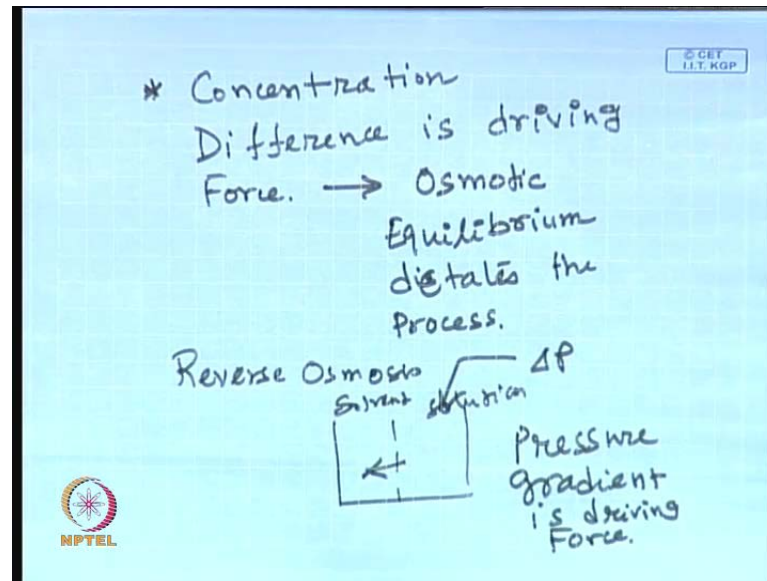 © CET
I.I.T. KGP
* Concentration
Difference is driving
Force. → Osmotic
Equilibrium
dictates the
Process.
Reverse Osmosis
Solvent solution ΔP
Pressure
gradient
is driving
Force.
NPTEL